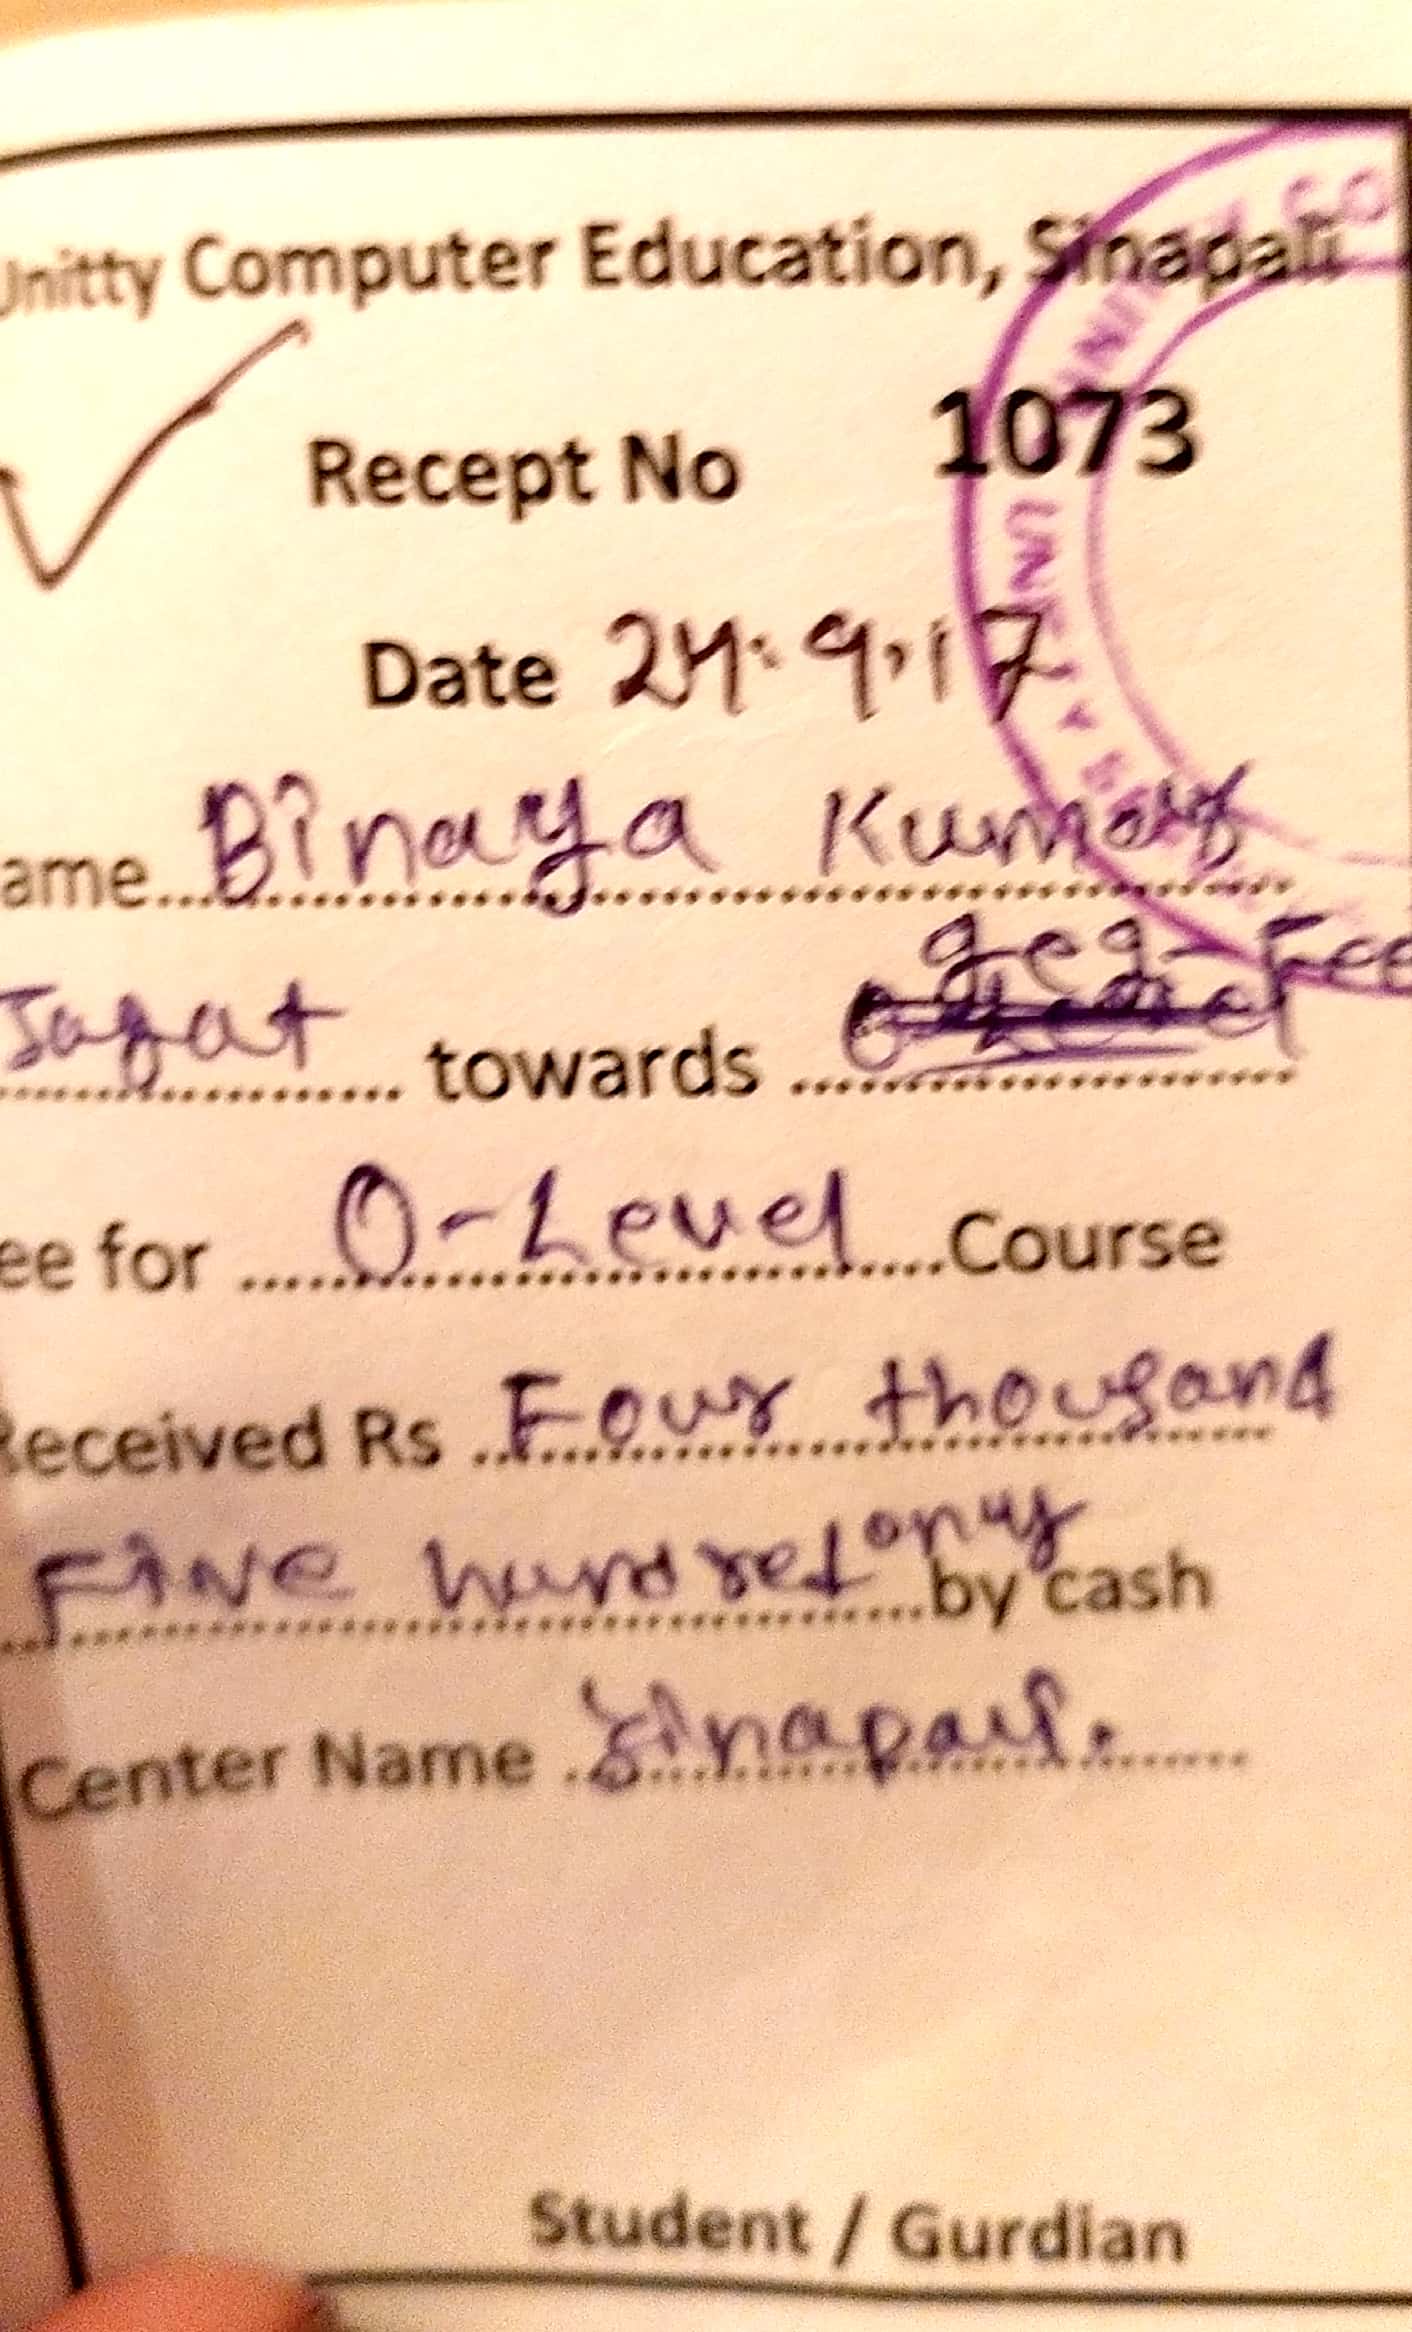 Unitty Computer Education, Sinapali
Recept No 1073
Date 24.9.17
ame Binaya Kumar
Jagat towards Reg-Fee
ee for O-Level Course
Received Rs Four thousand
Five hundred only by cash
Center Name Sinapali.
Student / Gurdian